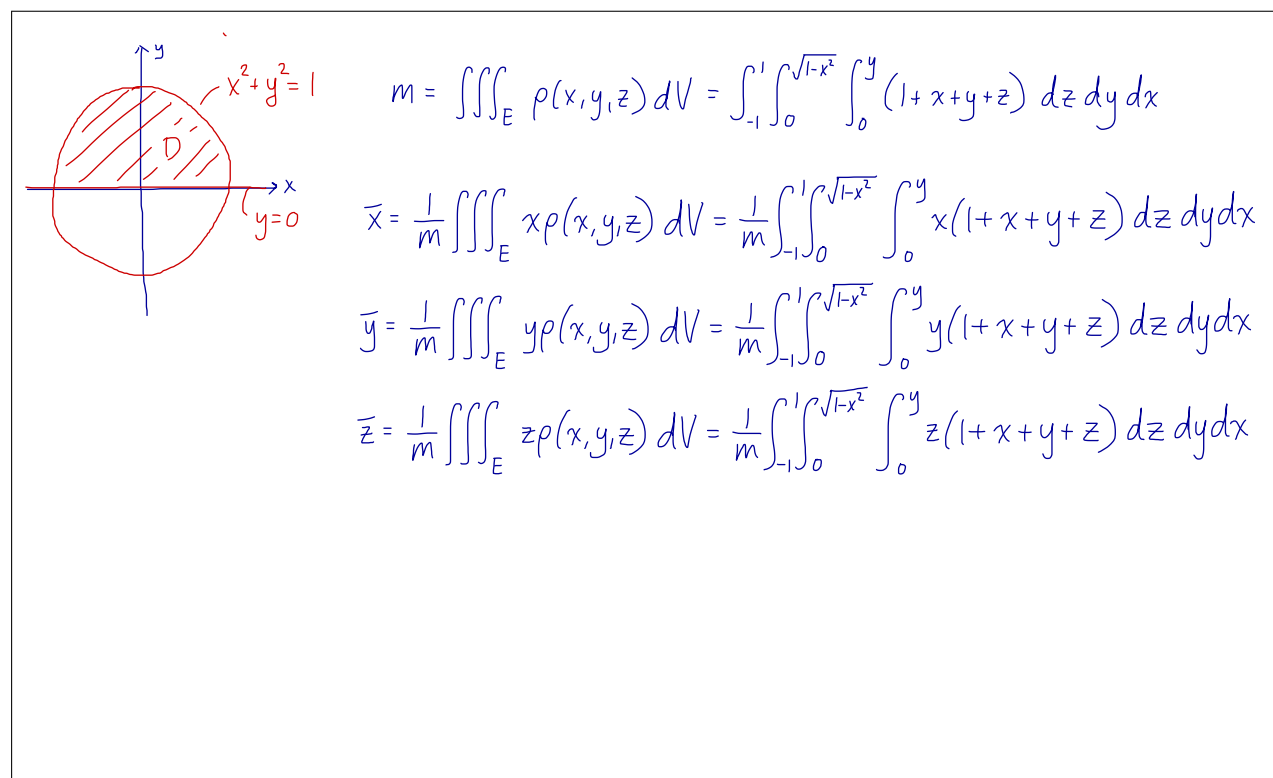 y
x² + y² = 1
D
x
y=0
m = ∭_E ρ(x,y,z) dV = ∫_{-1}^{1} ∫_0^{√(1-x²)} ∫_0^y (1+x+y+z) dz dy dx
x̄ = 1/m ∭_E xρ(x,y,z) dV = 1/m ∫_{-1}^{1} ∫_0^{√(1-x²)} ∫_0^y x(1+x+y+z) dz dy dx
ȳ = 1/m ∭_E yρ(x,y,z) dV = 1/m ∫_{-1}^{1} ∫_0^{√(1-x²)} ∫_0^y y(1+x+y+z) dz dy dx
z̄ = 1/m ∭_E zρ(x,y,z) dV = 1/m ∫_{-1}^{1} ∫_0^{√(1-x²)} ∫_0^y z(1+x+y+z) dz dy dx